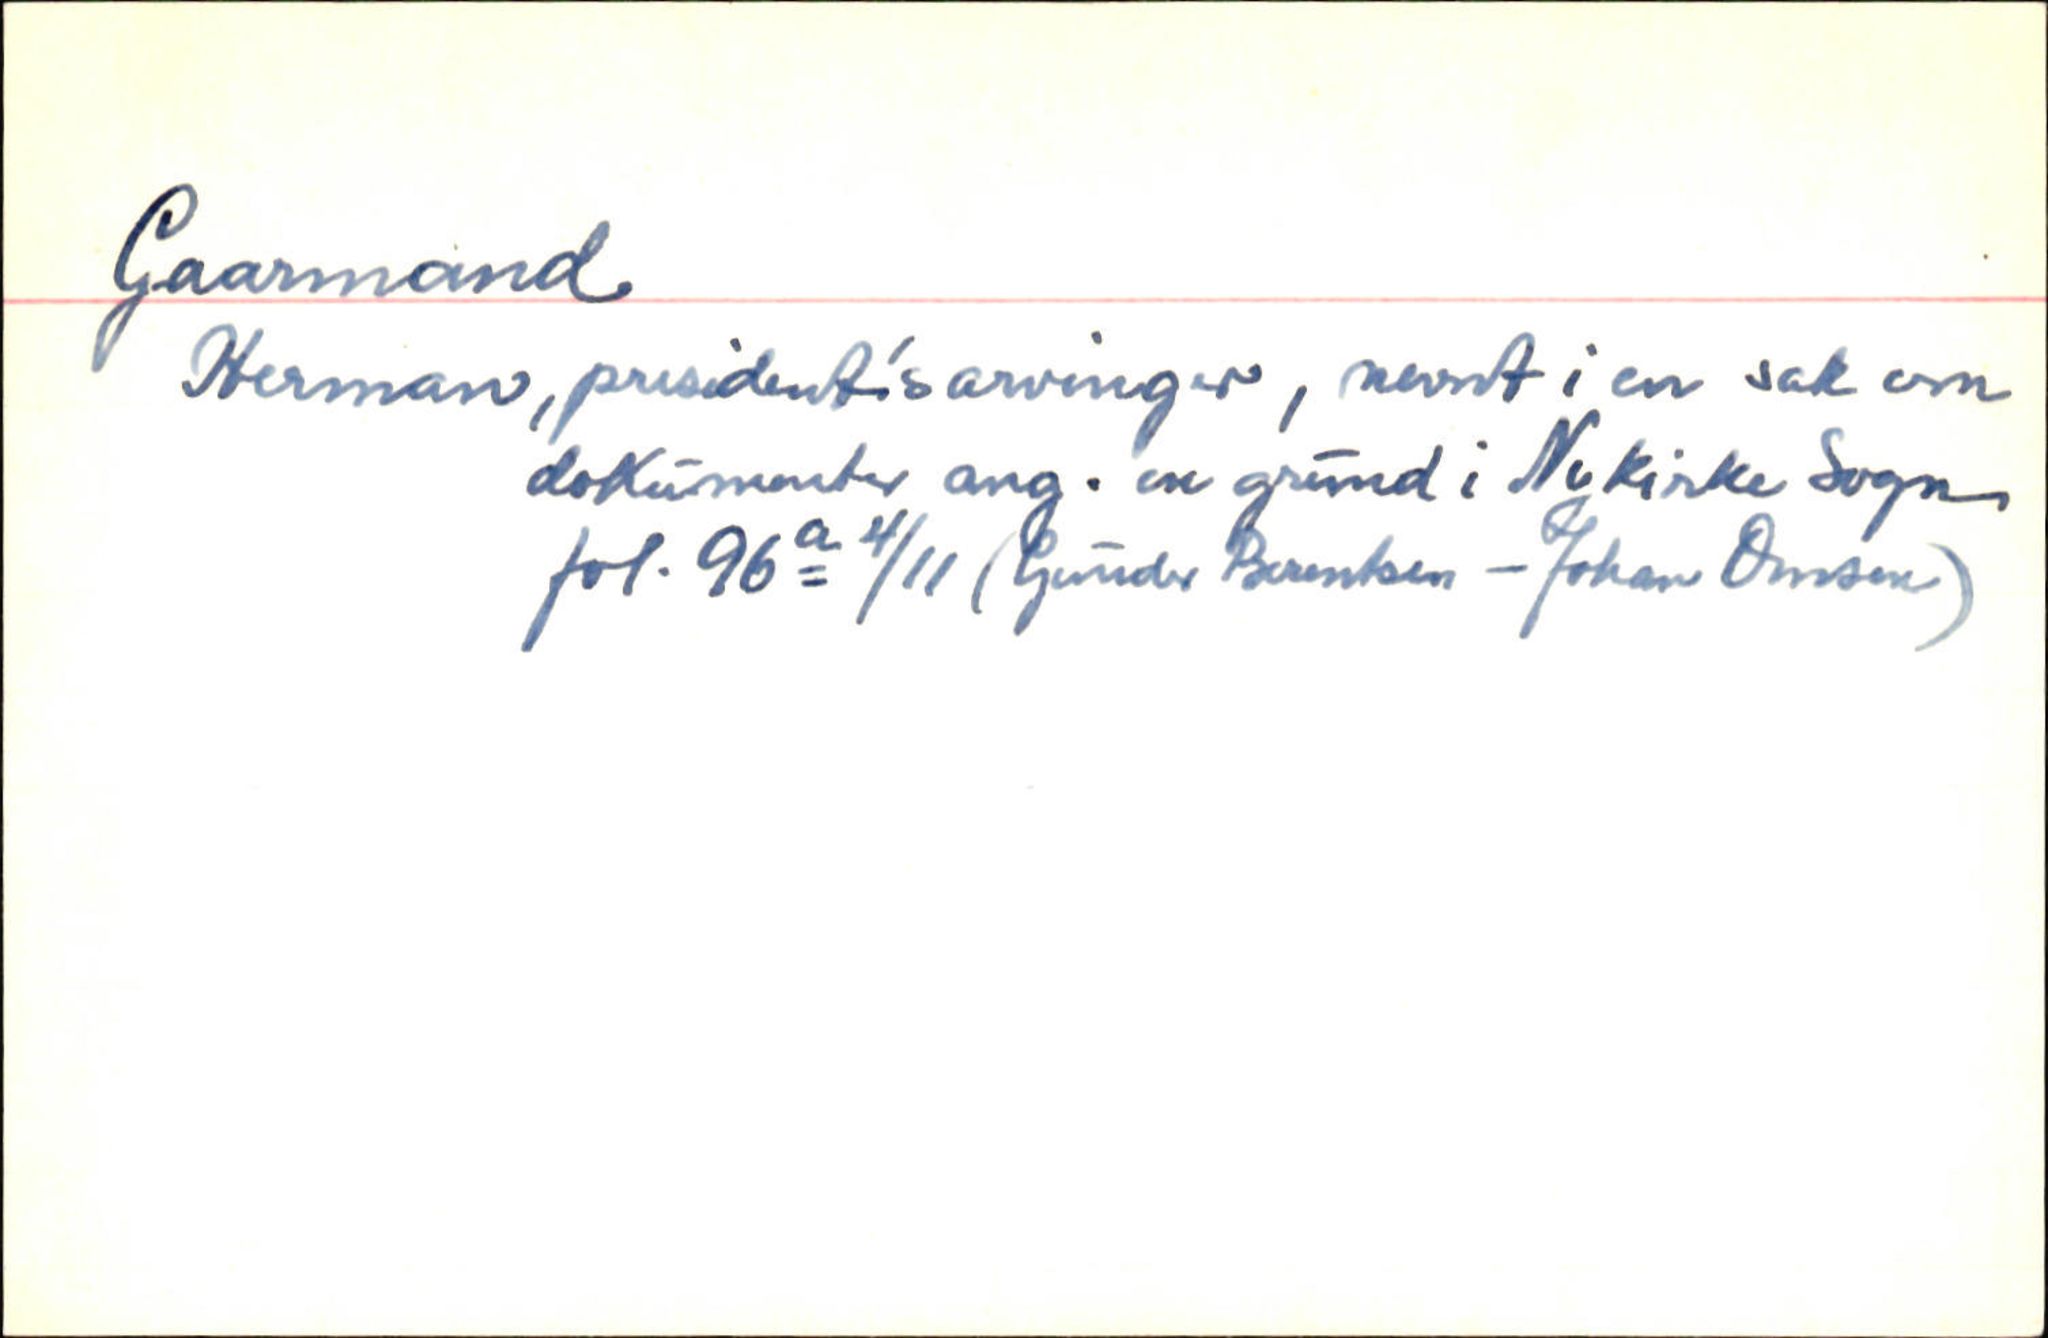 Gaarmand
Herman, president's arvinger, nevnt i en sak om
dokumenter ang. en grund i Nykirke Sogn
fol. 96a 4/11 (Gunder Berentsen - Johan Omsen)